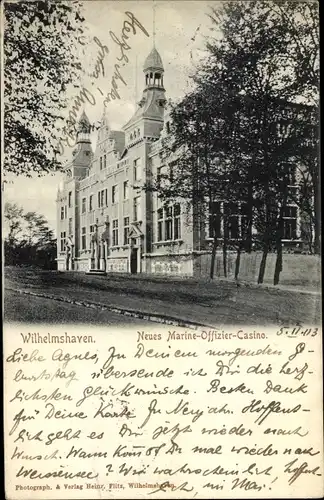 Herzl.
Wilhelmshaven.
Neues Marine-Offizier-Casino.
5.II.03
Liebe Agnes, Zu Deinem morgenden Ge-
burtstag übersende ich Dir die herz-
lichsten Glückwünsche. Besten Dank
für Deine Karte zu Neujahr. Hoffent-
lich geht es Dir jetzt wieder nach
Wunsch. Wann kommst Du mal wieder nach
? Wie wahrscheinlich hoffe
ich zu uns im Mai!
Photograph. & Verlag Heinr. Flitz, Wilhelmshaven.